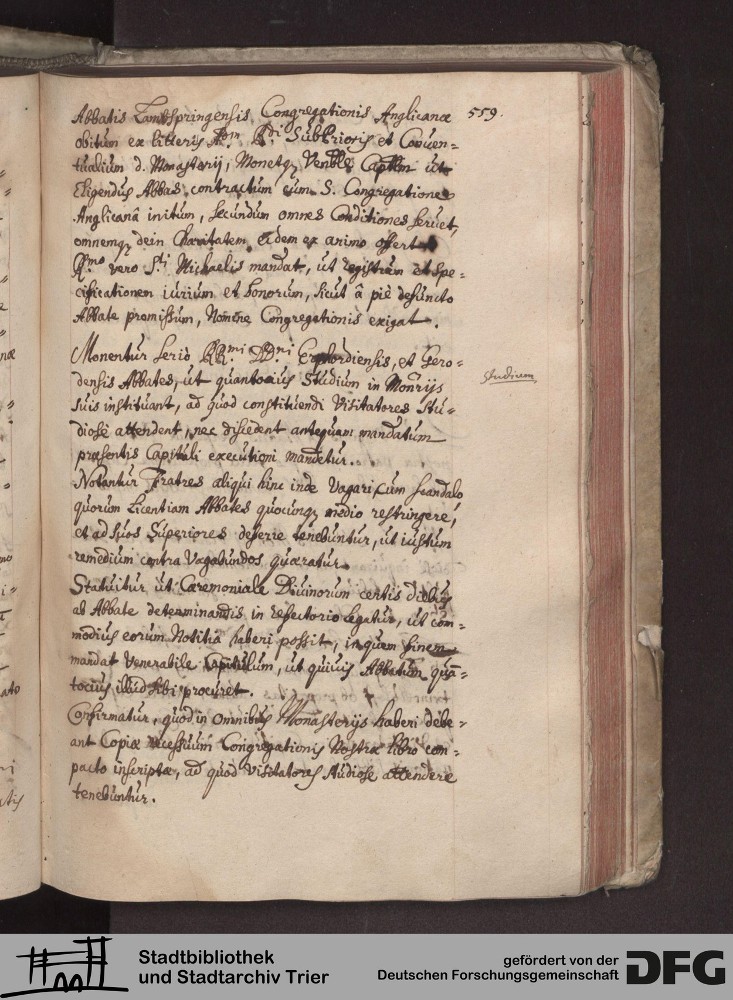 559.
Abbatis Lambspringensis, Congregationis Anglicanæ
obitum ex litteris Adm. Rdi SubPrioris et Conuen=
tualium d. Monasterij, Monetqꝫ Venble Capitlm ut
Eligendus Abbas contractum cum S. Congregatione
Anglicanâ initum, secundum omnes Conditiones seruet,
omnemqꝫ dein Charitatem Eidem ex animo offert
Rmo vero Sti Michaelis mandat, ut registrum et spe=
cificationem iurium et bonorum, sicut â piè defuncto
Abbate promissum, Nomine Congregationis exigat.
Monentur serio RRmi DDni Erphordiensis, et Gero=
densis Abbates, ut quantocius Studium in Monrijs
studium
suis instituant, ad quod constituendi Visitatores stu=
diosè attendent, nec discedent antequam mandatum
præsentis Capituli executioni mandetur.
Notantur Fratres aliqui hinc inde Vagari cum scandalo
quorum Licentiam Abbates quocunqꝫ medio restringere,
et ad suos Superiores deferre tenebuntur, ut iustum
remedium contra Vagabundos quæratur.
Statuitur ut Cæremoniale Diuinorum certis diebus
ab Abbate determinandis in refectorio legatur, ut com=
modius eorum Notitia haberi possit, in quem finem
mandat Venerabile Capitulum, ut quiuis Abbatum quã=
tocius illud sibi procuret.
Confirmatur, quod in omnibus Monasterijs haberi debe=
ant Copiæ recessuum Congregationis Nostræ libro com=
pacto inscriptæ, ad quod Visitatores studiose attendere
tenebuntur.
Stadtbibliothek
und Stadtarchiv Trier
gefördert von der
Deutschen Forschungsgemeinschaft
DFG